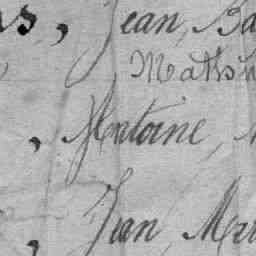 s, Jean Ba
Maths
, Antoine,
, Jean